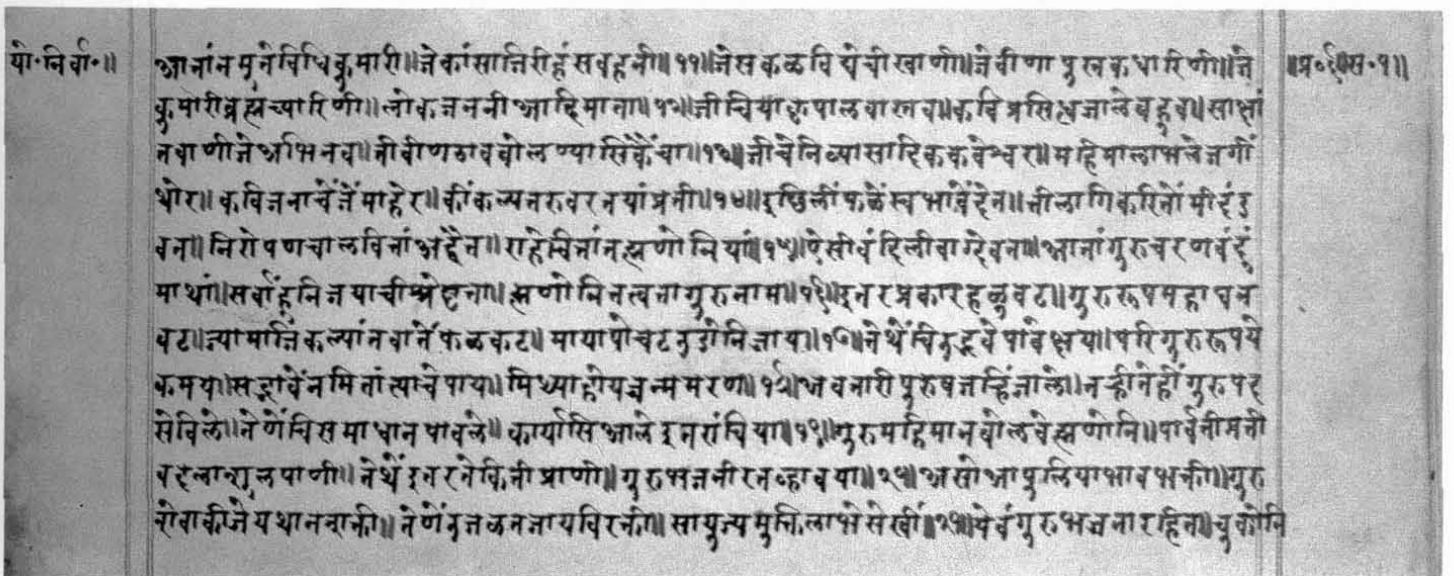 यो॰निर्वा॰॥ आतांनमुनेविधिकुमारी॥जेकांसाजिरीहंसवहनी॥११॥जेसकळविद्येचीखाणी॥जेवीणापुस्तकधारिणी॥जे ॥प्र॰६॥स॰१॥
कुमारीब्रह्मच्यारिणी॥लोकजननीआदिमाता॥१२॥जीचियाकृपालवास्तव॥कविप्रसिद्धजालेबहुव॥साक्षां
तवाणीजेअभिनव॥तीवीणठावबोलण्यासिकैंचा॥१३॥जीचेनिव्यासादिककवेश्वर॥महिमालाभलेजगीं
थोर॥कविजनाचेंजेंमाहेर॥कींकल्पतरुवरतयांप्रती॥१४॥इछिलींफळेंस्वभावेंदेत॥तीलागिकरितोंमीदंड
वत॥निरोपणचालवितांअद्वैत॥राहेचित्तांतह्मणोनियां॥१५॥ऐसीवंदिलीवाग्देवता॥आतांगुरुचरणवंदूं
माथां॥सर्वांहुनिजयाचीश्रेष्ठता॥ह्मणोनितत्वतागुरुनाम॥१६॥इतरप्रकारहळुवट॥गुरुरूपमहाघन
वट॥ज्यामाजिंकल्पांतवातेंफळकट॥मायापोचटउडोनिजाय॥१७॥तेथेंचिदुद्भवेपावेक्षय॥परिगुरुरूपये
कमय॥सद्भावेंनमितांत्याचेपाय॥मिथ्याहोयजन्ममरण॥१८॥भवनारीपुरुषजन्हिंजाले॥तर्‍हीतेहींगुरुपद
सेविले॥तेणेंचिसमाधानपावले॥कार्यासिआलेइतरांचिया॥१९॥गुरुमहिमानबोलवेह्मणोनि॥पार्वतीप्रती
वदलाशुलपाणी॥तेथेंइतरतेकितीप्राणी॥गुरुभजनीरतव्हावया॥२०॥असोआपुलियाभावभक्ती॥गुरु
सेवाकीजेयथानशक्ती॥तेणेंउजळतजायविरक्ती॥सायुज्यमुक्तिलाभेसेखीं॥२१॥येवंगुरुभजनारहित॥चुकोनि